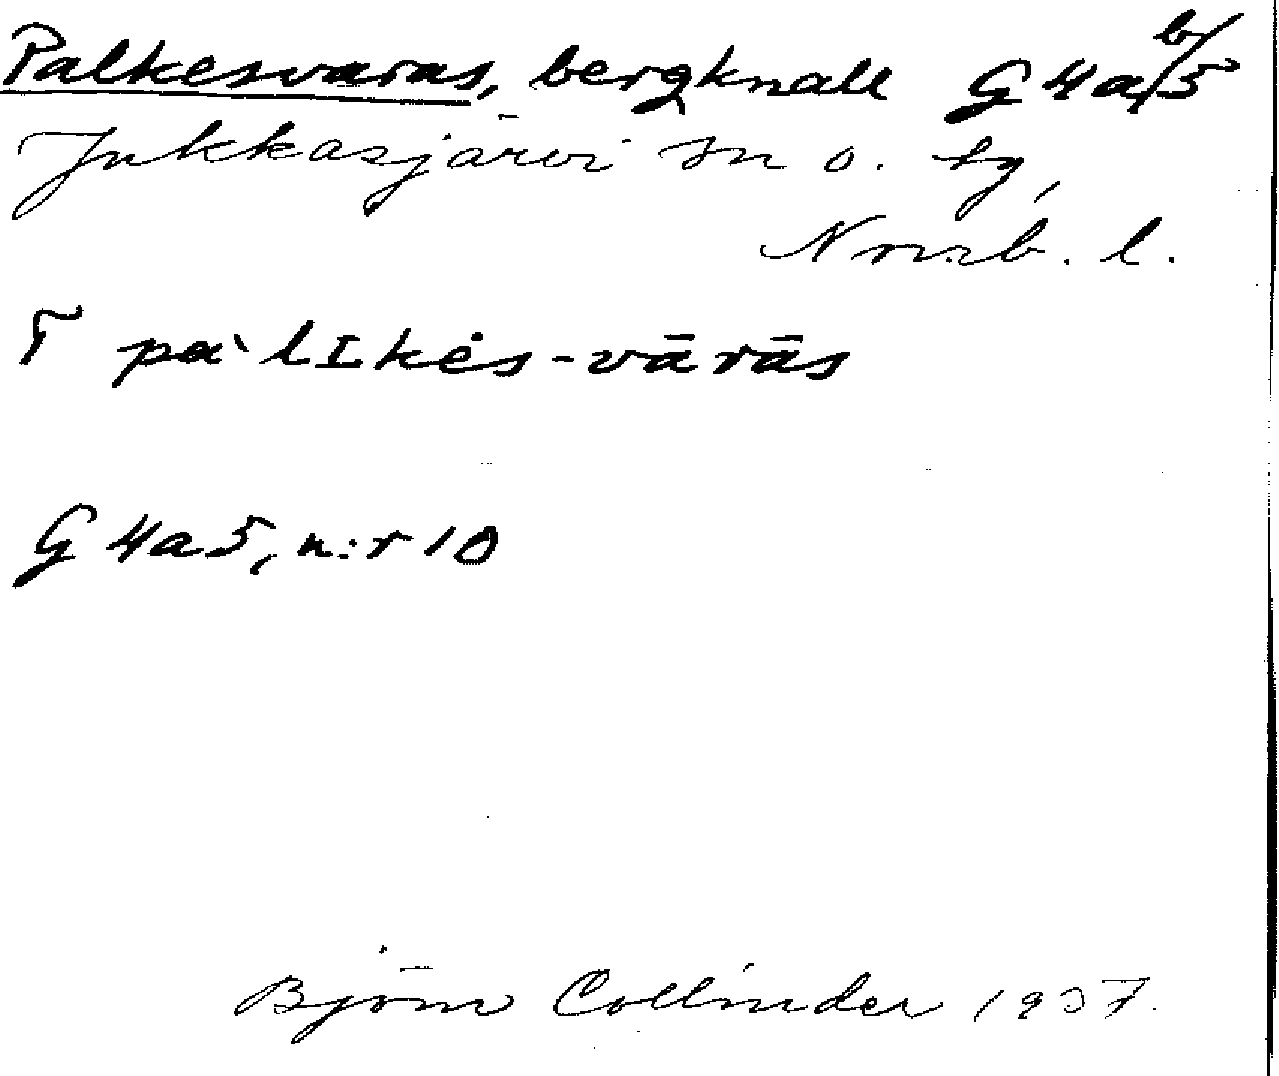 Palkesvaras, bergknall G4a,b/5
Jukkasjärvi sn o. tg,
Norrb. l.
T pa`lIkės-vārās
G4a5, n:r 10
Björn Collinder 1937.